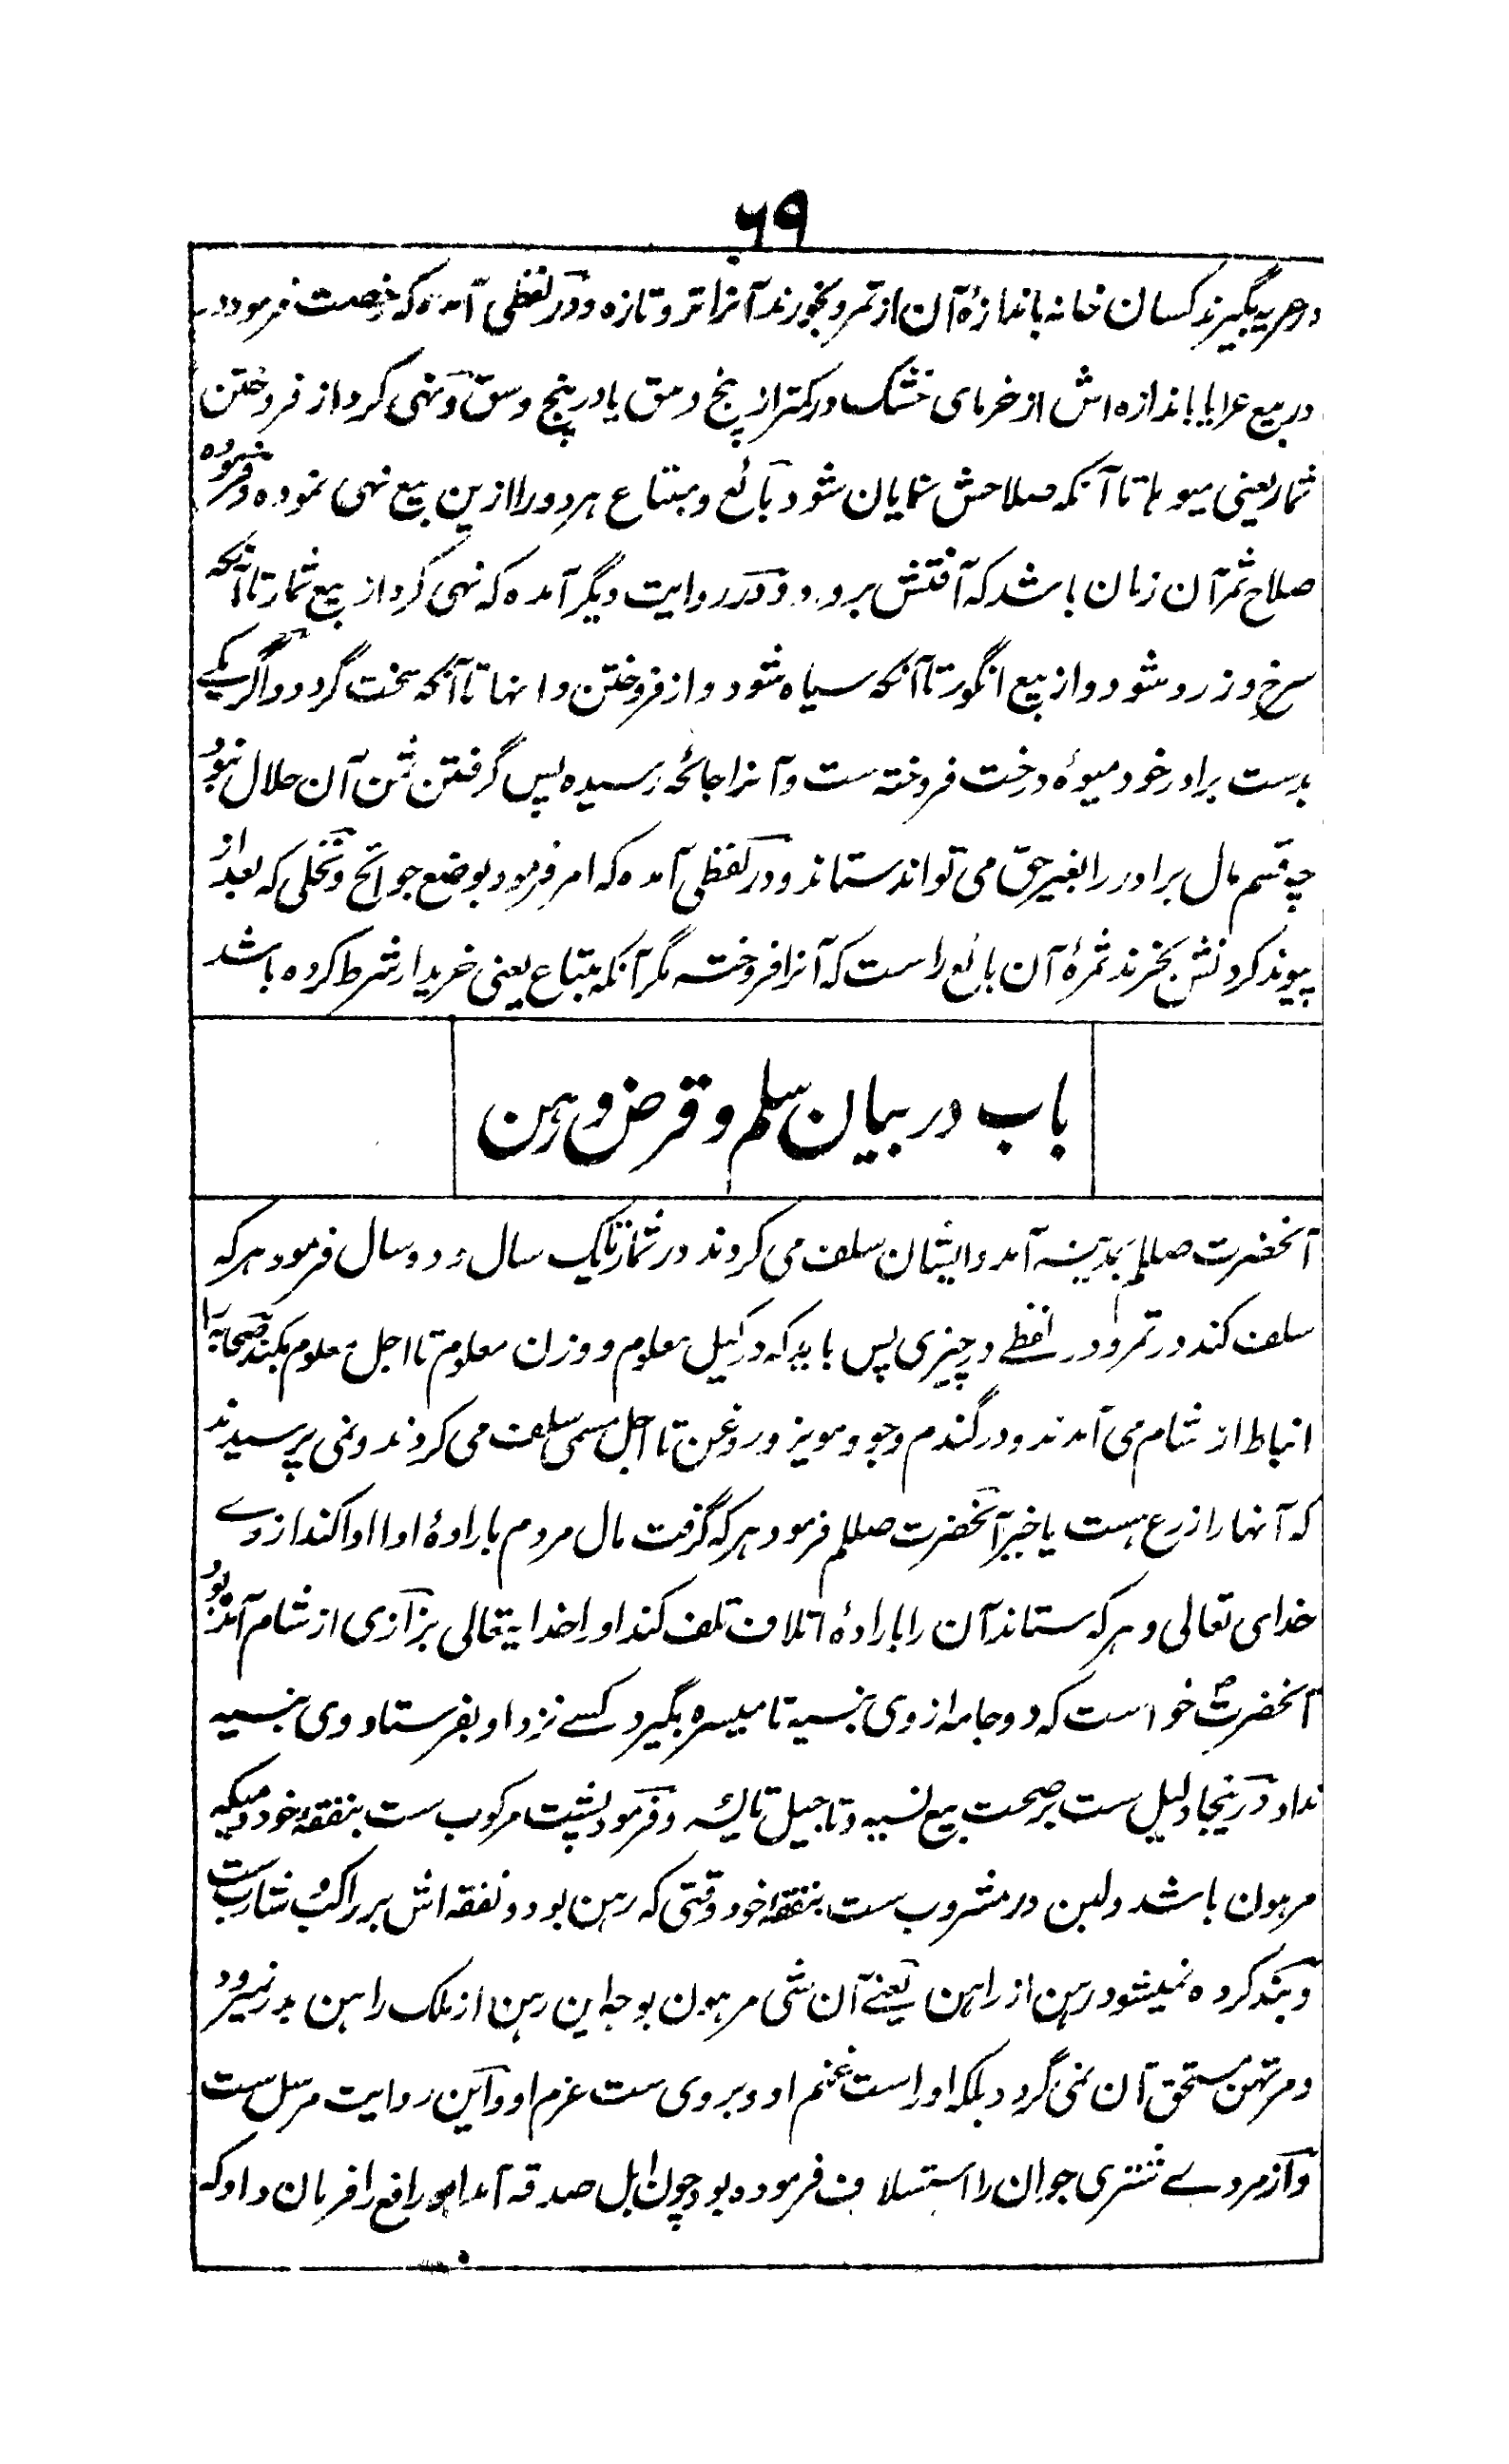 ۶۹
در عریه بگیرند کسان خانه باندازۀ آن از تمر و بخورند آنرا تر و تازه و در لفظی آمده که رخصت فرمود
در بیع عرایا باندازه اش از خرمای خشک در کمتر از پنج وسق یا در پنج وسق و نهی کرد از فروختن
ثمار یعنی میوها تا آنکه صلاحش نمایان شود بائع و مبتاع هر دو را ازین بیع نهی نموده و فرموده
صلاح ثمر آن زمان باشد که آفتش برود و در روایت دیگر آمده که نهی کرد از بیع ثمار تا آنکه
سرخ و زرد شود و از بیع انگور تا آنکه سیاه شود و از فروختن دانها تا آنکه سخت گردد و اگر یکے
بدست برادر خود میوۀ درخت فروخته ست و آنرا جائحه رسیده پس گرفتن ثمن آن حلال نبود
چه قسم مال برادر را بغیر حق می تواند ستاند و در لفظی آمده که امر فرمود بوضع جوائح و نخلی که بعد از
پیوند کردنش بخرند ثمرۀ آن بائع راست که آنرا فروخته مگر آنکه مبتاع یعنی خریدار شرط کرده باشد
باب در بیان سلم و قرض و رهن
آنحضرت صللم بمدینه آمد و ایشان سلف می کردند در ثمار تا یک سال و دو سال فرمود هر که
سلف کند در تمر و در لفظے در چیزی پس باید که در کیل معلوم و وزن معلوم تا اجل معلوم بکند صحابه را
انباط از شام می آمدند و در گندم و جو و مویز و روغن تا اجل مسمی سلف می کردند و نمی پرسیدند
که آنها را زرع هست یا خیر آنحضرت صللم فرمود هر که گرفت مال مردم بارادۀ ادا ادا کند از وے
خدای تعالی و هر که ستاند آن را بارادۀ اتلاف تلف کند او را خدایتعالی بزازی از شام آمده بود
آنحضرتؐ خواست که دو جامه از وی بنسیه تا میسره بگیرد کسے نزد او بفرستاد وی بنسیه
نداد درینجا دلیل ست بر صحت بیع نسیه و تاجیل تا میسره و فرمود پشت مرکوب ست بنفقۀ خود وقتیکه
مرهون باشد و لبن در مشروب ست بنفقۀ خود وقتی که رهن بود و نفقه اش بر راکب و شارب ست
و بند کرده نمیشود رهن از راهن یعنے آن شی مرهون بوجه این رهن از ملک راهن بدر نمیرود
و مرتهن مستحق آن نمی گردد بلکه اوراست غنم او و بروی ست غرم او و این روایت مرسل ست
و از مردے شتری جوان را استسلاف فرموده بود چون ابل صدقه آمد ابو رافع را فرمان داد که